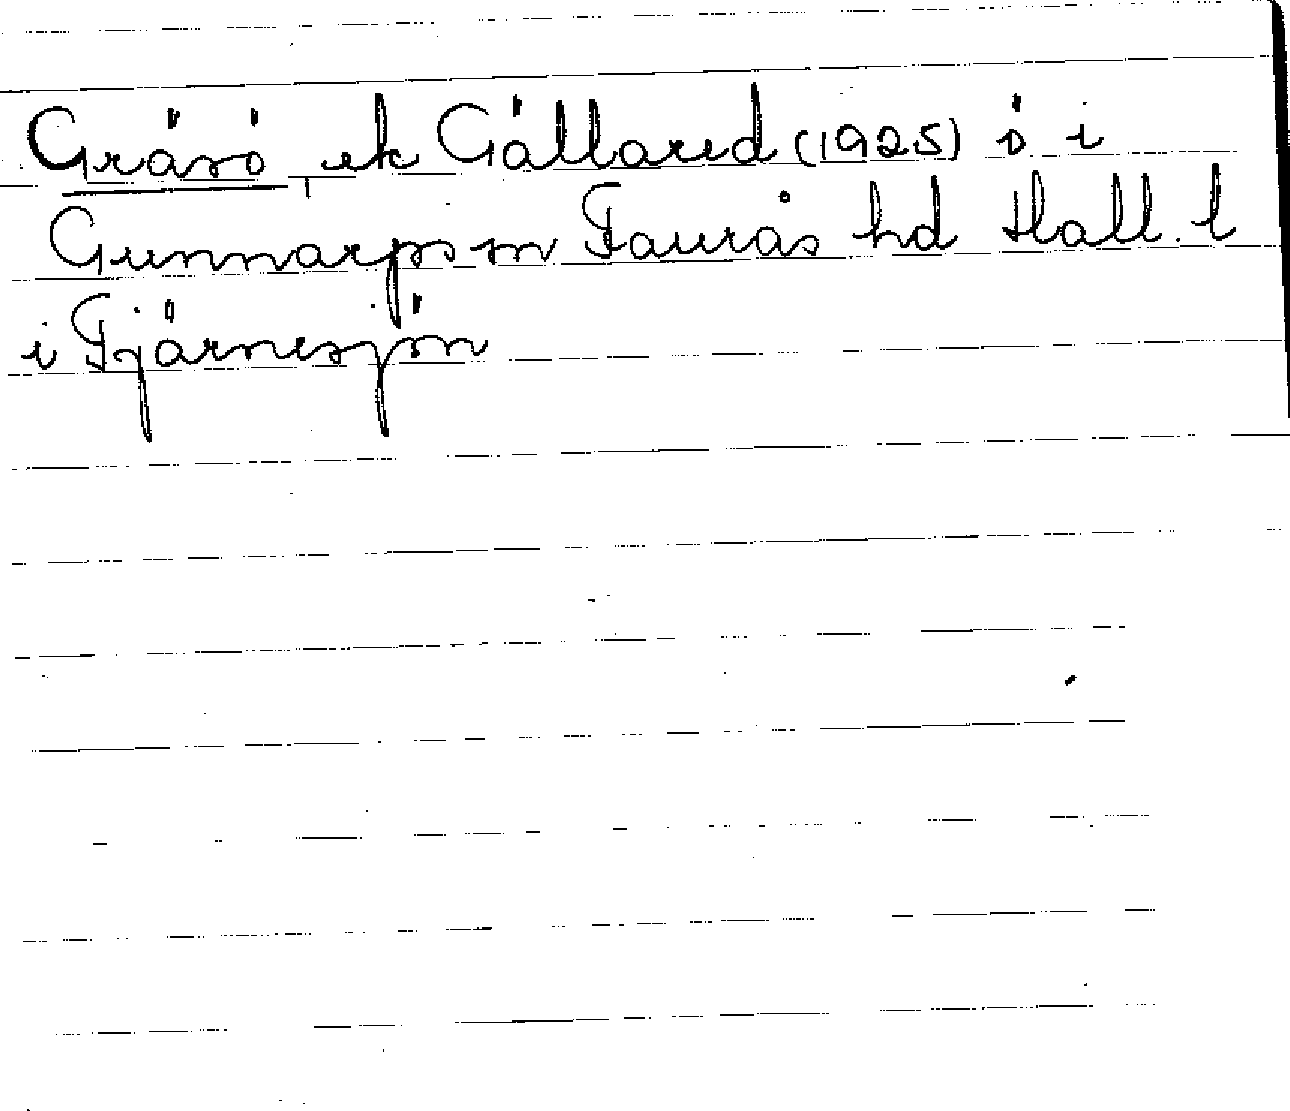 Gräsö, ek Gällared (1925) ö i
Gunnarps sn Faurås hd Hall. l
i Fjärnesjön